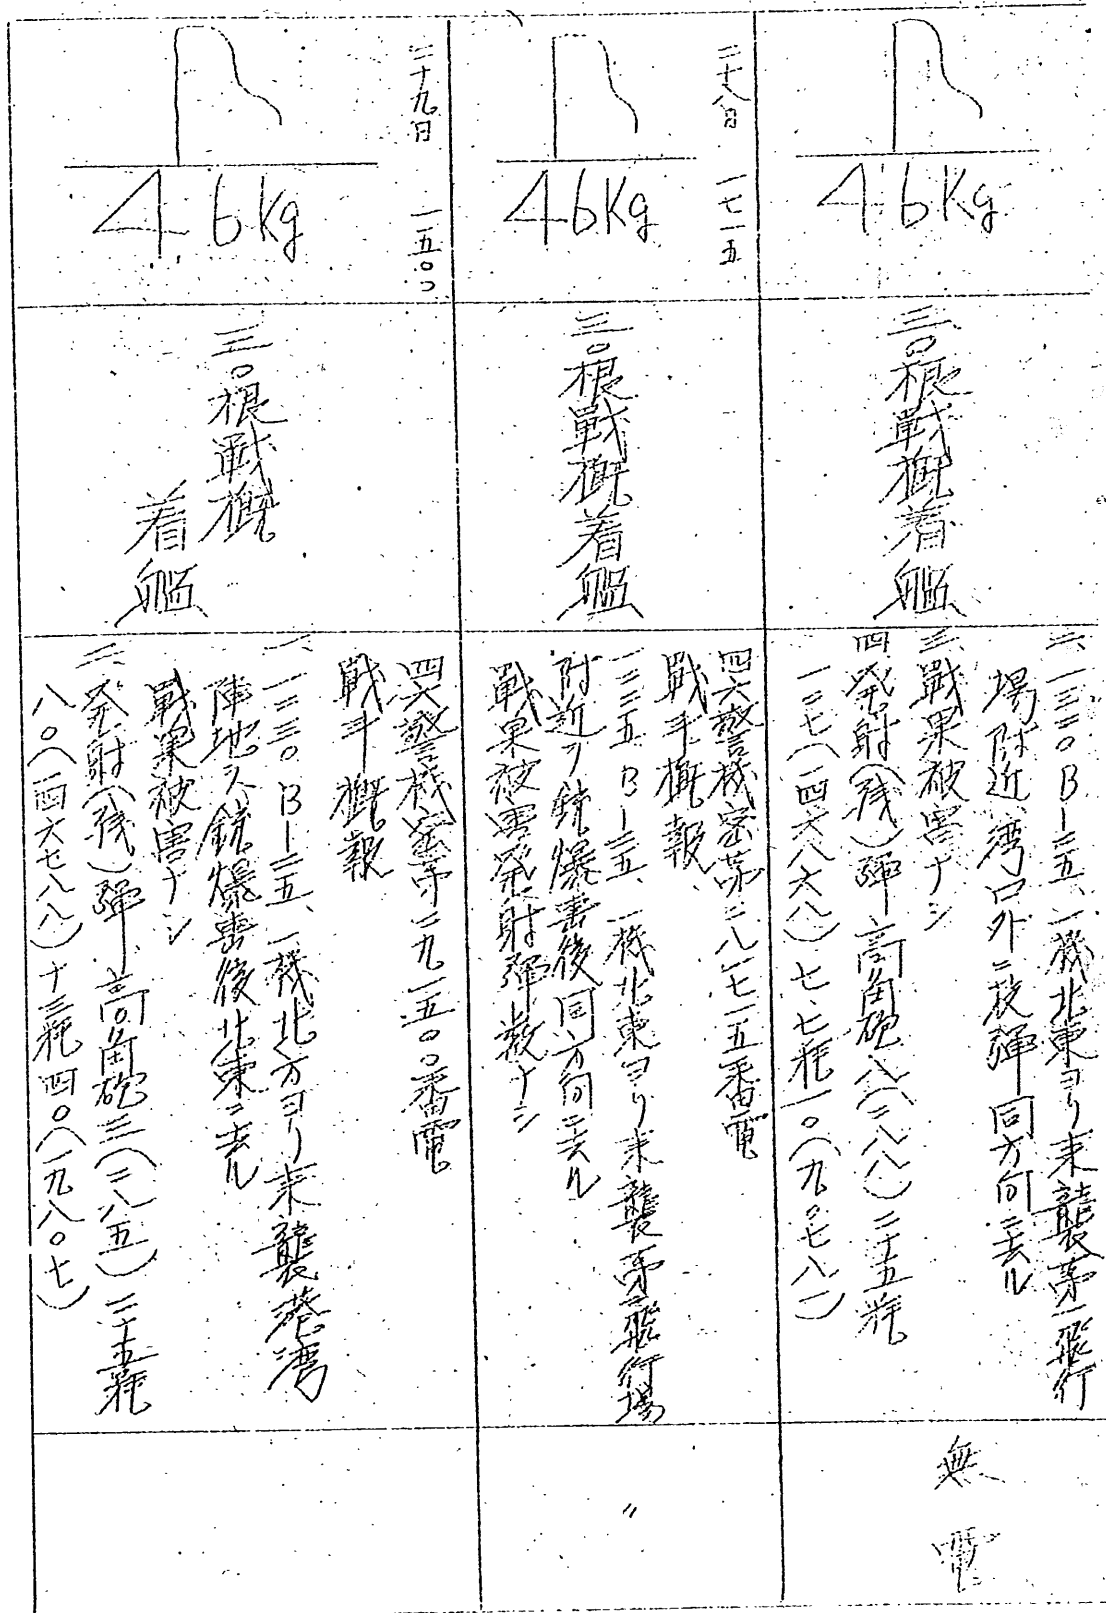 46Kg
三〇根戰概着艦
二、一三二〇B-二五、一機北東ヨリ来襲第一飛行
場附近、湾口外ニ投弾同方向ニ去ル
三、戰果被害ナシ
四、発射(残)弾 高角砲八(二八八)二十五粍
一〇七(一四六八六八)七、七粍一〇(九〇七八一)
無電
二十八日 一七一五
46Kg
三〇根戰概着艦
四六警機密第二八一七一五番電
戰斗概報
一二三五B-二五、一機北東ヨリ来襲第二飛行場
附近ヲ銃爆撃後同方向ニ去ル
戰果被害発射弾数ナシ
〃
二十九日 一五〇〇
46Kg
三〇根戰概
着艦
四六警機密第二九一五〇〇番電
戰斗概報
一、一二三〇B-二五、一機北方ヨリ来襲港湾
陣地ヲ銃爆撃後北東ニ去ル
戰果被害ナシ
二、発射(残)弾、高角砲三(二八五)二十五粍
八〇(一四六七八八)十三粍四〇(一九八〇七)